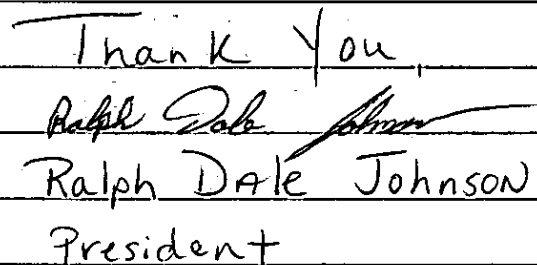 Thank You,
Ralph Dale Johnson
Ralph DAle Johnson
President